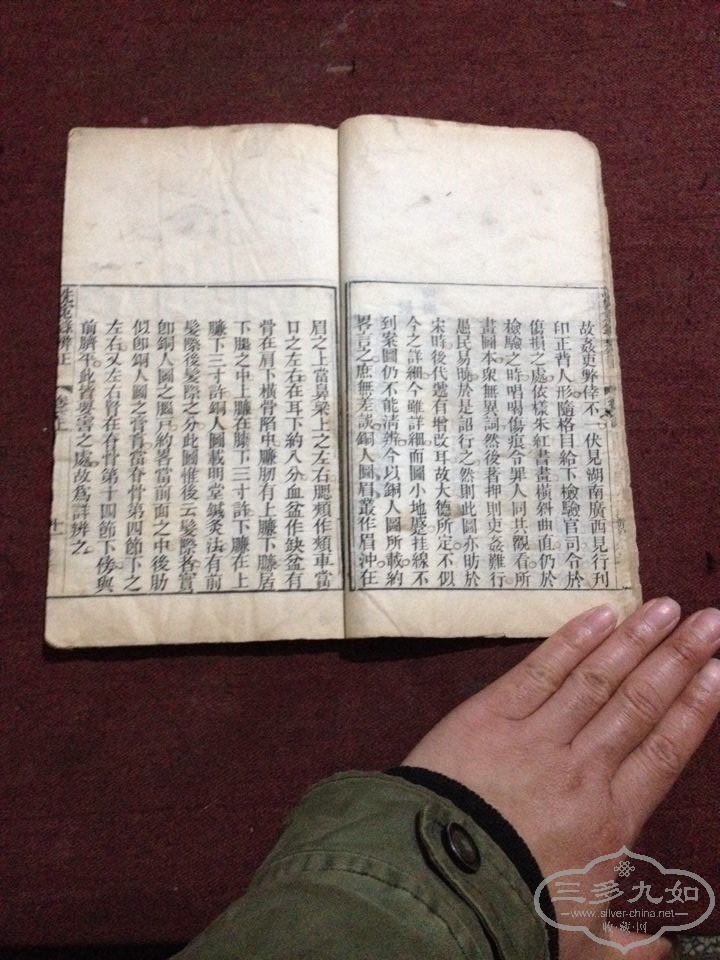 故姦吏弊倖不 伏見湖南廣西見行刊
印正背人形隨格目給下檢驗官司令於
傷損之處依樣朱紅書畫橫斜曲直仍於
檢驗之時唱喝傷痕令罪人同共觀看所
畫圖本衆無異詞然後著押則吏姦難行
愚民易曉於是詔行之然則此圖亦昉於
宋時後代遞有增改耳故大德所定不似
今之詳細今雖詳細而圖小地蹙挂線不
到案圖仍不能清辨今以銅人圖所載約
畧言之庶無差誤銅人圖眉叢作眉沖在
眉之上當鼻梁上之左右顋頰作頰車當
口之左右在耳下約八分血盆作缺盆有
骨在肩下橫骨陷中臁肕有上臁下臁居
下腿之中上臁在膝下三寸許下臁在上
臁下三寸許銅人圖載明堂鍼灸法有前
髮際後髮際之分此圖惟後云髮際者實
卽銅人圖之腦戶約畧當前面之中後肋
似卽銅人圖之膏肓當脊骨第四節下之
左右又左右腎在脊骨第十四節下傍與
前臍平此皆要害之處故爲詳辨之
洗冤錄辨正 十一
三多九如
www.silver-china.net
收藏网